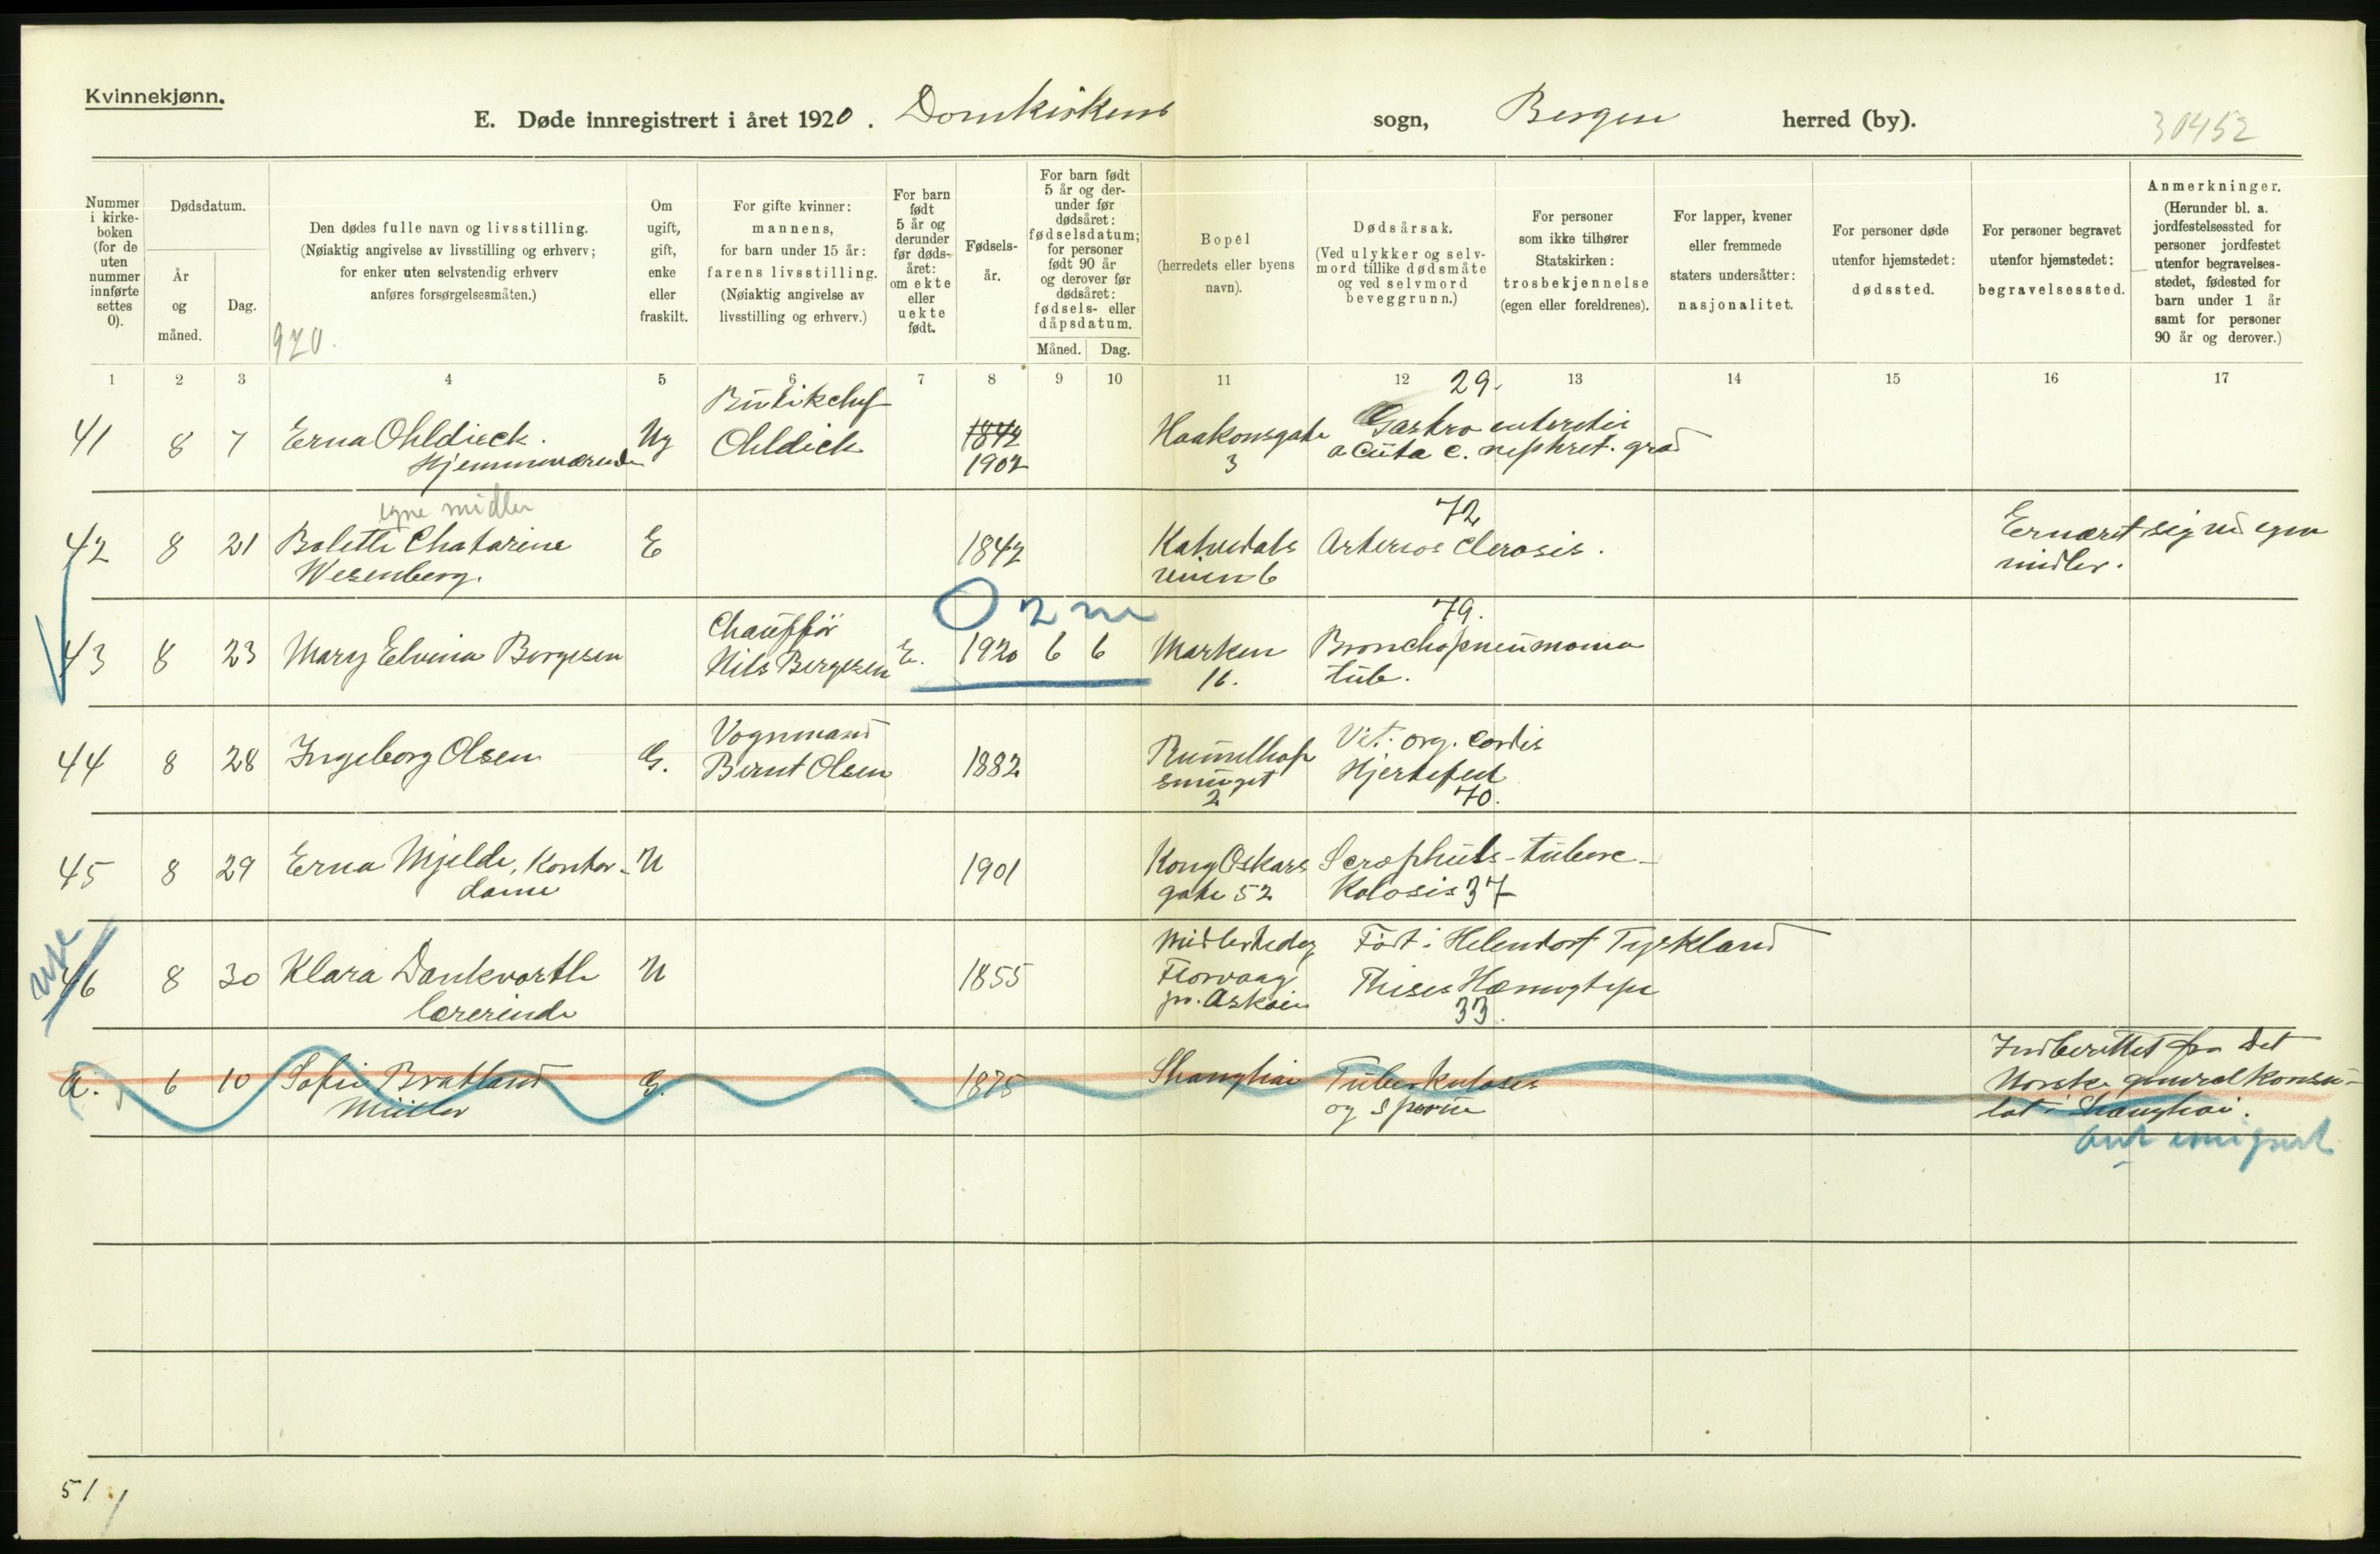 Kvinnekjønn.
E. Døde innregistrert i året 1920. Domkirkens sogn, Bergen herred (by). 30452
Nummer i kirke-boken (for de uten nummer innførte settes 0).
Dødsdatum.
År og måned.
Dag.
Den dødes fulle navn og livsstilling.
(Nøiaktig angivelse av livsstilling og erhverv;
for enker uten selvstendig erhverv
anføres forsørgelsesmåten.)
920.
Om ugift, gift, enke eller fraskilt.
For gifte kvinner:
mannens,
for barn under 15 år:
farens livsstilling.
(Nøiaktig angivelse av
livsstilling og erhverv.)
For barn født 5 år og derunder før døds-året: om ekte eller uekte født.
Fødsels-år.
For barn født 5 år og der-under før dødsåret: fødselsdatum; for personer født 90 år og derover før dødsåret: fødsels- eller dåpsdatum.
Måned. Dag.
Bopel
(herredets eller byens
navn).
Dødsårsak.
(Ved ulykker og selv-
mord tillike dødsmåte
og ved selvmord
beveggrunn.)
For personer
som ikke tilhører
Statskirken:
trosbekjennelse
(egen eller foreldrenes).
For lapper, kvener
eller fremmede
staters undersåtter:
nasjonalitet.
For personer døde
utenfor hjemstedet:
dødssted.
For personer begravet
utenfor hjemstedet:
begravelsessted.
Anmerkninger.
(Herunder bl. a.
jordfestelsessted for
personer jordfestet
utenfor begravelses-
stedet, fødested for
barn under 1 år
samt for personer
90 år og derover.)
1 2 3 4 5 6 7 8 9 10 11 12 13 14 15 16 17
29.
41 8 7 Erna Ohldieck. Ug Butikchef 1842 Haakonsgate Gastro enteritis
Hjemmeværende Ohldieck 1902 3 acuta c. nephret. grad
egne midler 72
42 8 21 Bolette Chatarine E 1842 Kalvedals Arteriosclerosis. Ernæret sig ved egne
Wesenberg. veien 6 midler.
0 2 m 79.
43 8 23 Mary Elvina Borgesen Chauffør E. 1920 6 6 Marken Bronchopneumonia
Nils Bergesen 16. tub.
44 8 28 Ingeborg Olsen G. Vognmand 1882 Vit. org. cordis
Bernt Olsen smuget Hjertefeil
2 70.
45 8 29 Erna Mjelde, Kontor- U 1901 Kong Oskars Scrophuls-tuberc-
dame gate 52 kolosis 37
46 8 30 Klara Dankvarth U 1855 Midlertidig Født i Helendorf Tyskland
lærerinde Florvaag
pr. Askøen 33.
a. 6 10 Sofie Bratland G. 1875 Shanghai Tuberkuloses Indberettet fra det
Müller og Norske generalkonsu-
lat i Shanghai.
emigrert
51